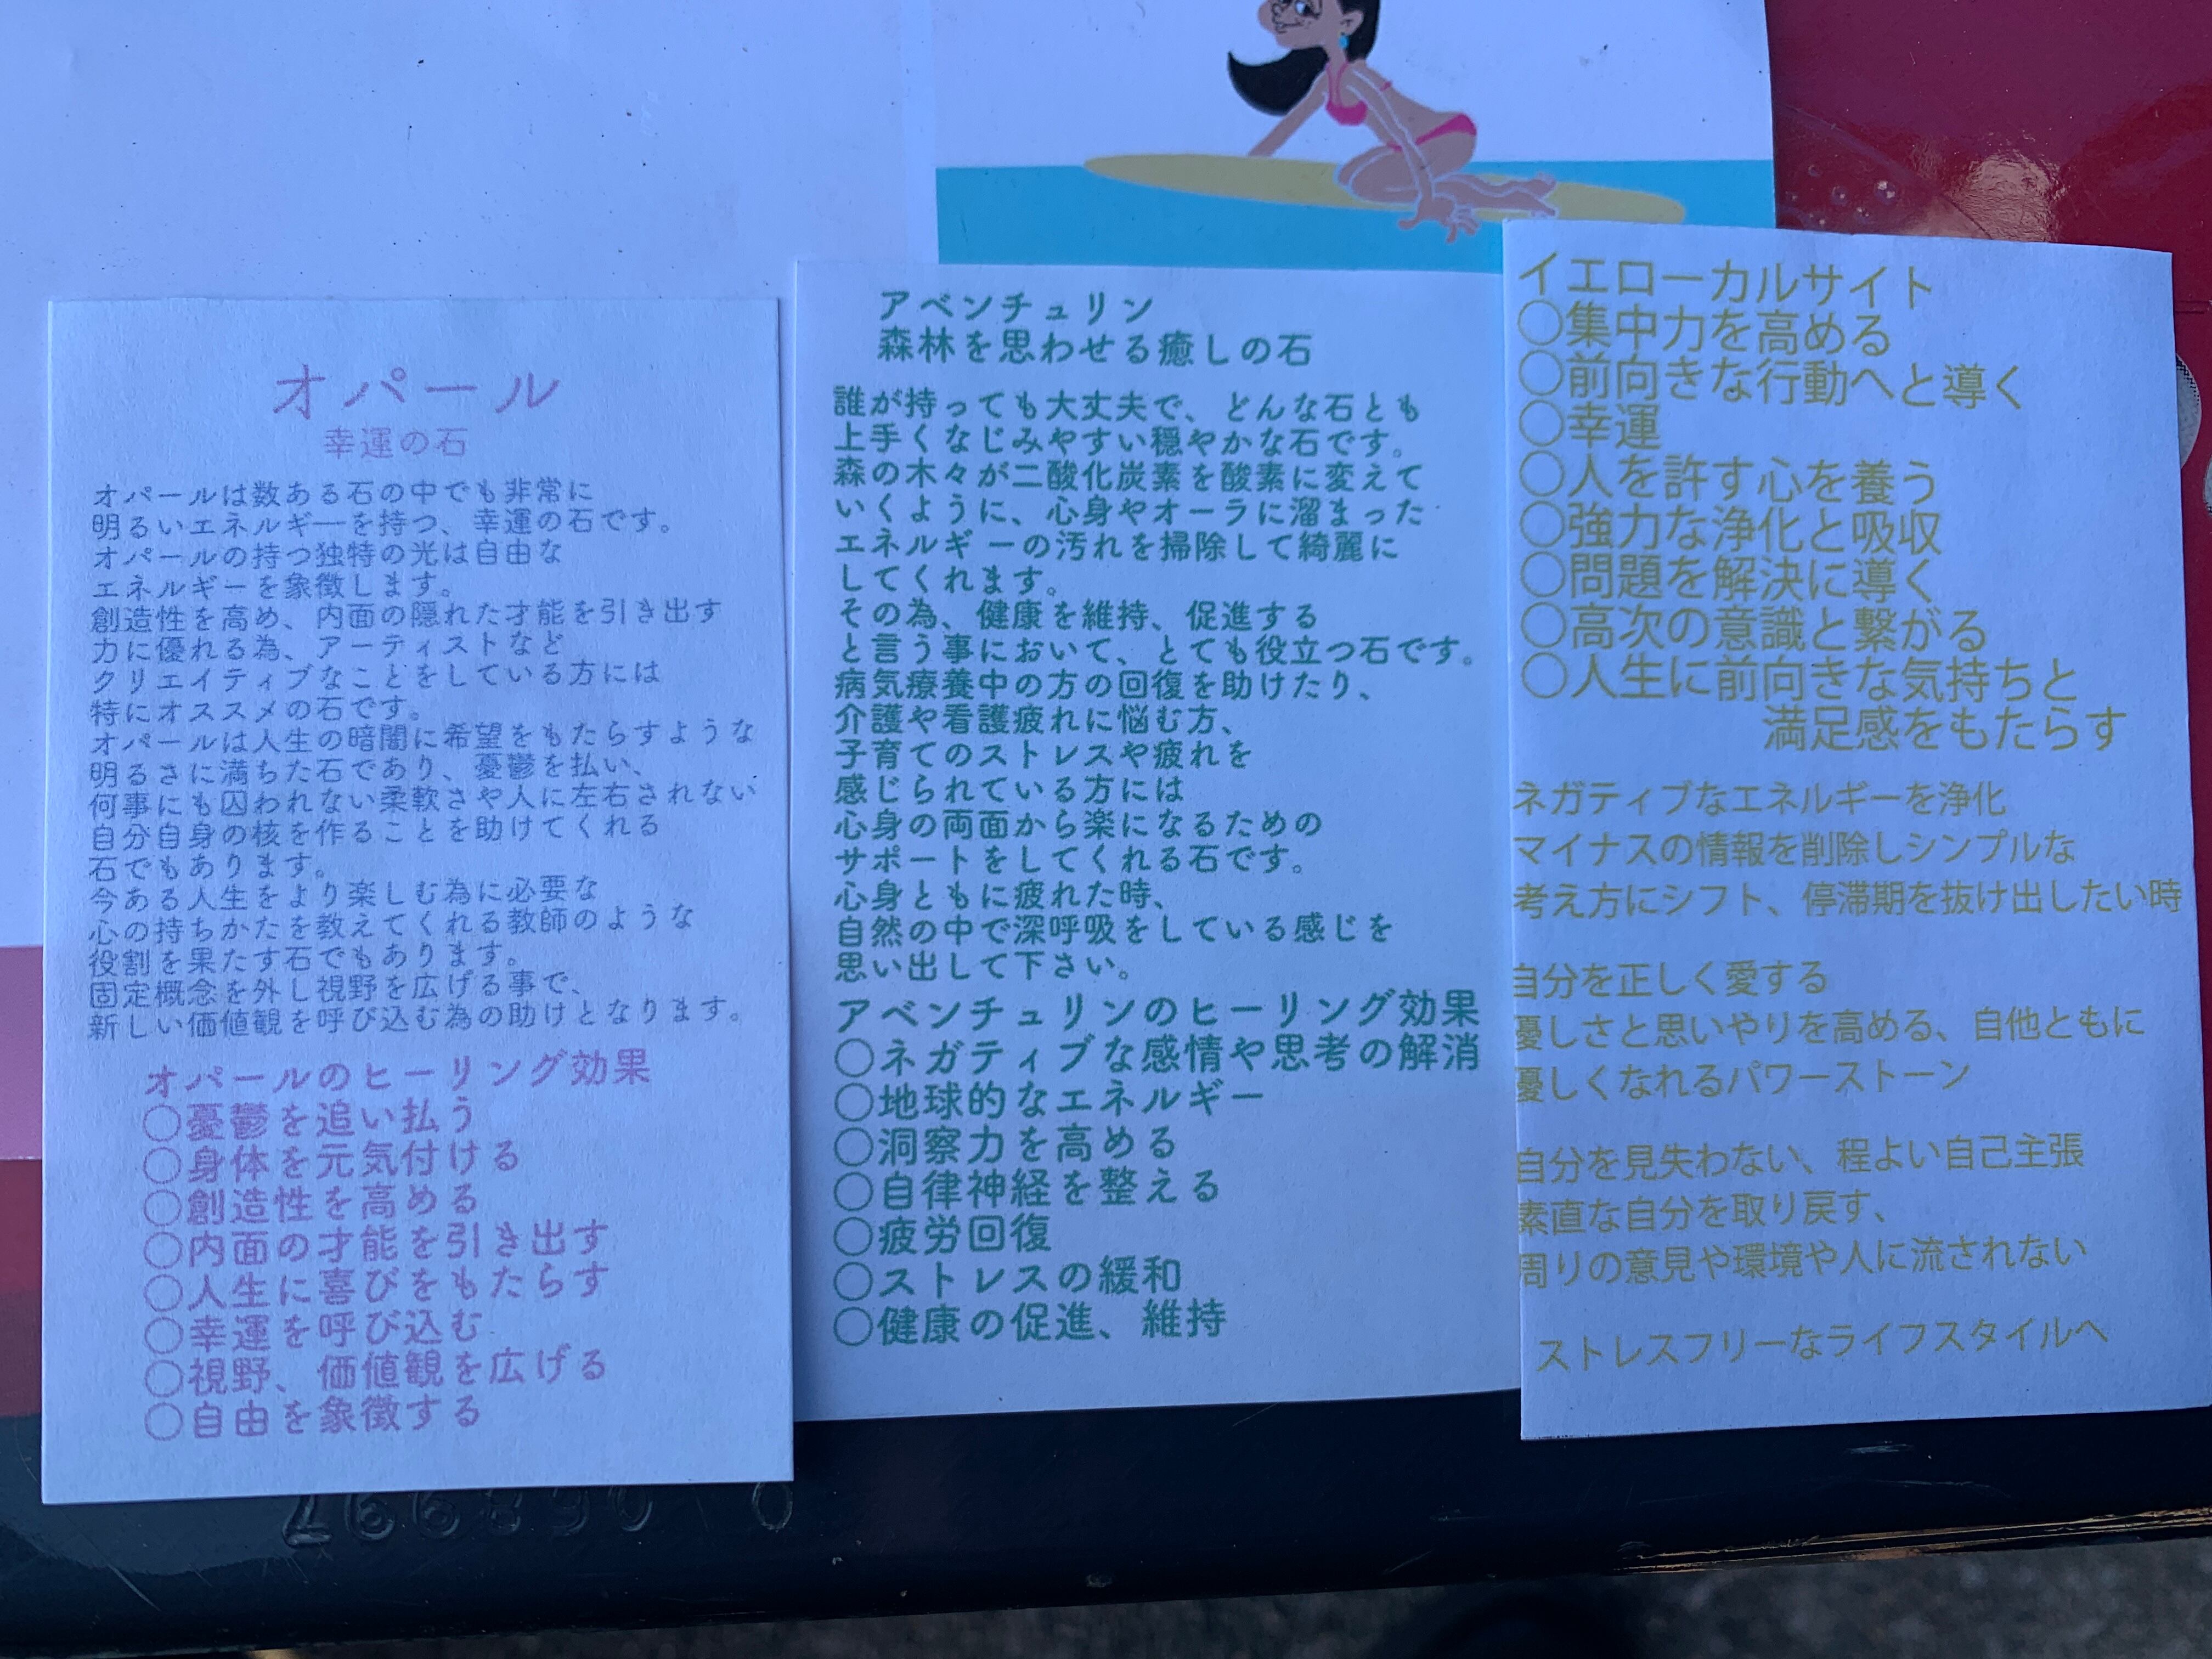 オパール
幸運の石
オパールは数ある石の中でも非常に
明るいエネルギーを持つ、幸運の石です。
オパールの持つ独特の光は自由な
エネルギーを象徴します。
創造性を高め、内面の隠れた才能を引き出す
力に優れる為、アーティストなど
クリエイティブなことをしている方には
特にオススメの石です。
オパールは人生の暗闇に希望をもたらすような
明るさに満ちた石であり、憂鬱を払い、
何事にも囚われない柔軟さや人に左右されない
自分自身の核を作ることを助けてくれる
石でもあります。
今ある人生をより楽しむ為に必要な
心の持ちかたを教えてくれる教師のような
役割を果たす石でもあります。
固定概念を外し視野を広げる事で、
新しい価値観を呼び込む為の助けとなります。
オパールのヒーリング効果
○憂鬱を追い払う
○身体を元気付ける
○創造性を高める
○内面の才能を引き出す
○人生に喜びをもたらす
○幸運を呼び込む
○視野、価値観を広げる
○自由を象徴する
アベンチュリン
森林を思わせる癒しの石
誰が持っても大丈夫で、どんな石とも
上手くなじみやすい穏やかな石です。
森の木々が二酸化炭素を酸素に変えて
いくように、心身やオーラに溜まった
エネルギーの汚れを掃除して綺麗に
してくれます。
その為、健康を維持、促進する
と言う事において、とても役立つ石です。
病気療養中の方の回復を助けたり、
介護や看護疲れに悩む方、
子育てのストレスや疲れを
感じられている方には
心身の両面から楽になるための
サポートをしてくれる石です。
心身ともに疲れた時、
自然の中で深呼吸をしている感じを
思い出して下さい。
アベンチュリンのヒーリング効果
○ネガティブな感情や思考の解消
○地球的なエネルギー
○洞察力を高める
○自律神経を整える
○疲労回復
○ストレスの緩和
○健康の促進、維持
イエローカルサイト
○集中力を高める
○前向きな行動へと導く
○幸運
○人を許す心を養う
○強力な浄化と吸収
○問題を解決に導く
○高次の意識と繋がる
○人生に前向きな気持ちと
満足感をもたらす
ネガティブなエネルギーを浄化
マイナスの情報を削除しシンプルな
考え方にシフト、停滞期を抜け出したい時
自分を正しく愛する
優しさと思いやりを高める、自他ともに
優しくなれるパワーストーン
自分を見失わない、程よい自己主張
素直な自分を取り戻す、
周りの意見や環境や人に流されない
ストレスフリーなライフスタイルへ